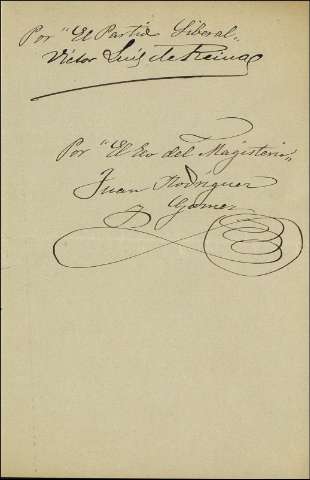 Por "El Partido Liberal"
Victor Luis de Reina
Por "El Eco del Magisterio"
Juan Rodriguez
y Gomez